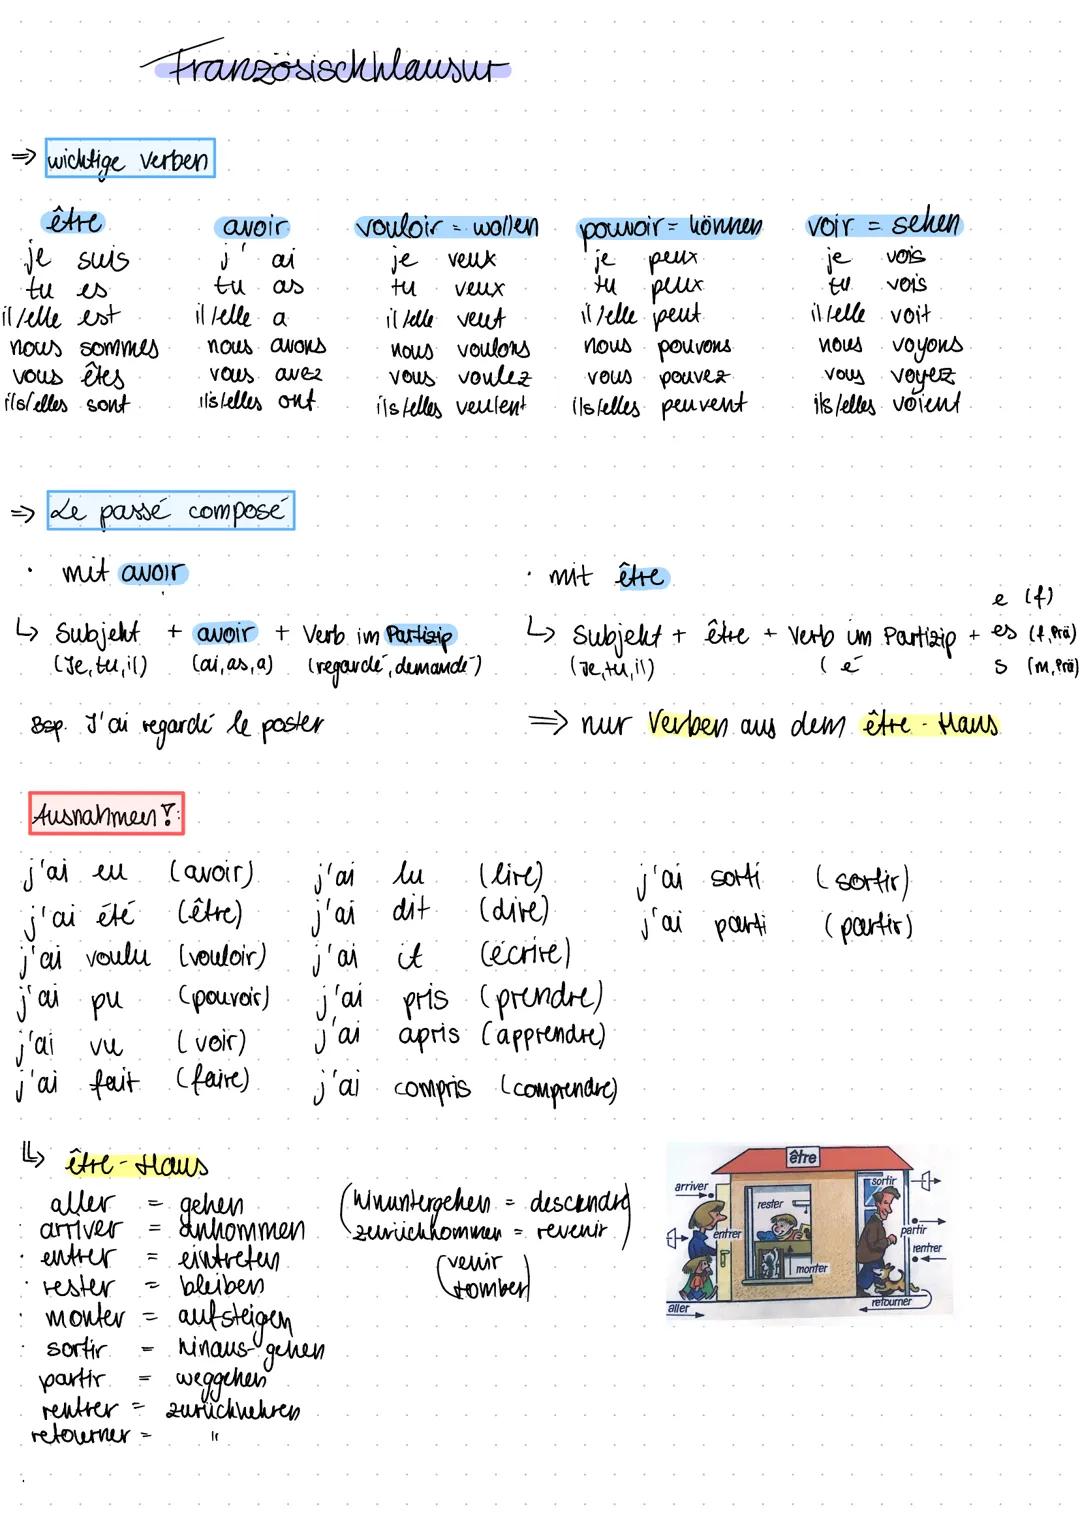 Französischklausur
⇒ wichtige Verben
être avoir vouloir = wollen pouvoir = können voir = sehen
je suis j' ai je veux je peux je vois
tu es tu as tu veux tu peux tu vois
il/elle est il/elle a il/elle veut il/elle peut il/elle voit
nous sommes nous avons nous voulons nous pouvons nous voyons
vous êtes vous avez vous voulez vous pouvez vous voyez
ils/elles sont ils/elles ont ils/elles veulent ils/elles peuvent ils/elles voient
⇒ Le passé composé
· mit avoir
↳ Subjekt + avoir + Verb im Partizip
(Je, tu, il) (ai, as, a) (regardé, demandé)
Bsp. J'ai regardé le poster
· mit être
e (f)
↳ Subjekt + être + Verb im Partizip + es (f, Prä)
(Je, tu, il) ( é s (m, Prä)
⇒ nur Verben aus dem être - Haus
Ausnahmen!:
j'ai eu (avoir) j'ai lu (lire) j'ai sorti (sortir)
j'ai été (être) j'ai dit (dire) j'ai parti (partir)
j'ai voulu (vouloir) j'ai it (écrire)
j'ai pu (pouvoir) j'ai pris (prendre)
j'ai vu (voir) j'ai apris (apprendre)
j'ai fait (faire) j'ai compris (comprendre)
↳ être - Haus
aller = gehen
· arriver = ankommen
· entrer = eintreten
· rester = bleiben
· monter = aufsteigen
· sortir = hinaus-gehen
partir = weggehen
rentrer = zurückkehren
retourner = "
(hinuntergehen = descendre
zurückkommen = revenir)
(venir
tomber)
être
arriver
sortir
rester
entrer
partir
rentrer
monter
aller
retourner